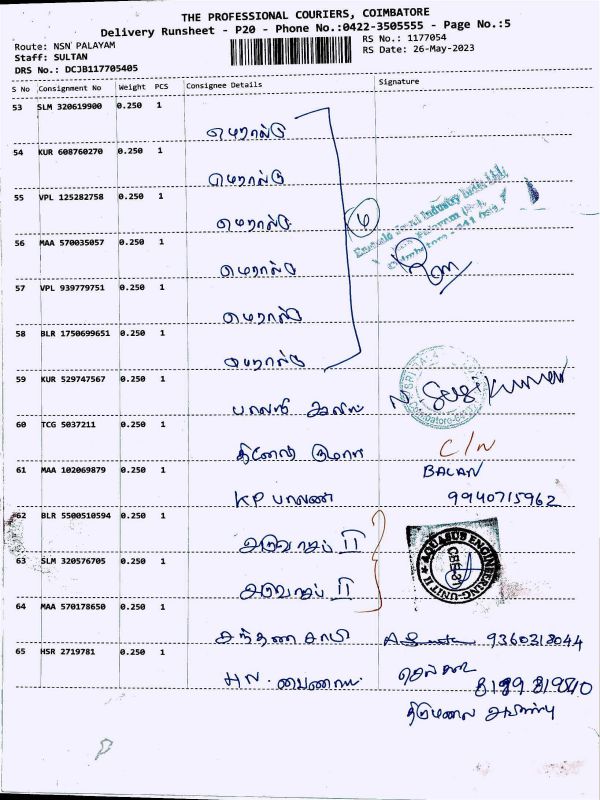 THE PROFESSIONAL COURIERS, COIMBATORE
Delivery Runsheet - P20 - Phone No.:0422-3505555 - Page No.:5
Route: NSN PALAYAM
RS No.: 1177054
Staff: SULTAN
RS Date: 26-May-2023
DRS No.: DCJB117705405
S No Consignment No Weight PCS Consignee Details Signature
53 SLM 320619900 0.250 1
எமரால்டு
54 KUR 608760270 0.250 1
எமரால்டு
55 VPL 125282758 0.250 1
எமரால்டு
56 MAA 570035057 0.250 1
எமரால்டு
57 VPL 939779751 0.250 1
எமரால்டு
58 BLR 1750699651 0.250 1
எமரால்டு
59 KUR 529747567 0.250 1
N. Susikumar
60 TCG 5037211 0.250 1
C/N
தினேஷ் குமார்
61 MAA 102069879 0.250 1
BALAN
KP பாலன் 9940715962
62 BLR 5500510594 0.250 1
II
63 SLM 320576705 0.250 1
AQUASUB ENGINEERING-UNIT II
II
64 MAA 570178650 0.250 1
சந்தன சாமி 9360318044
65 HSR 2719781 0.250 1